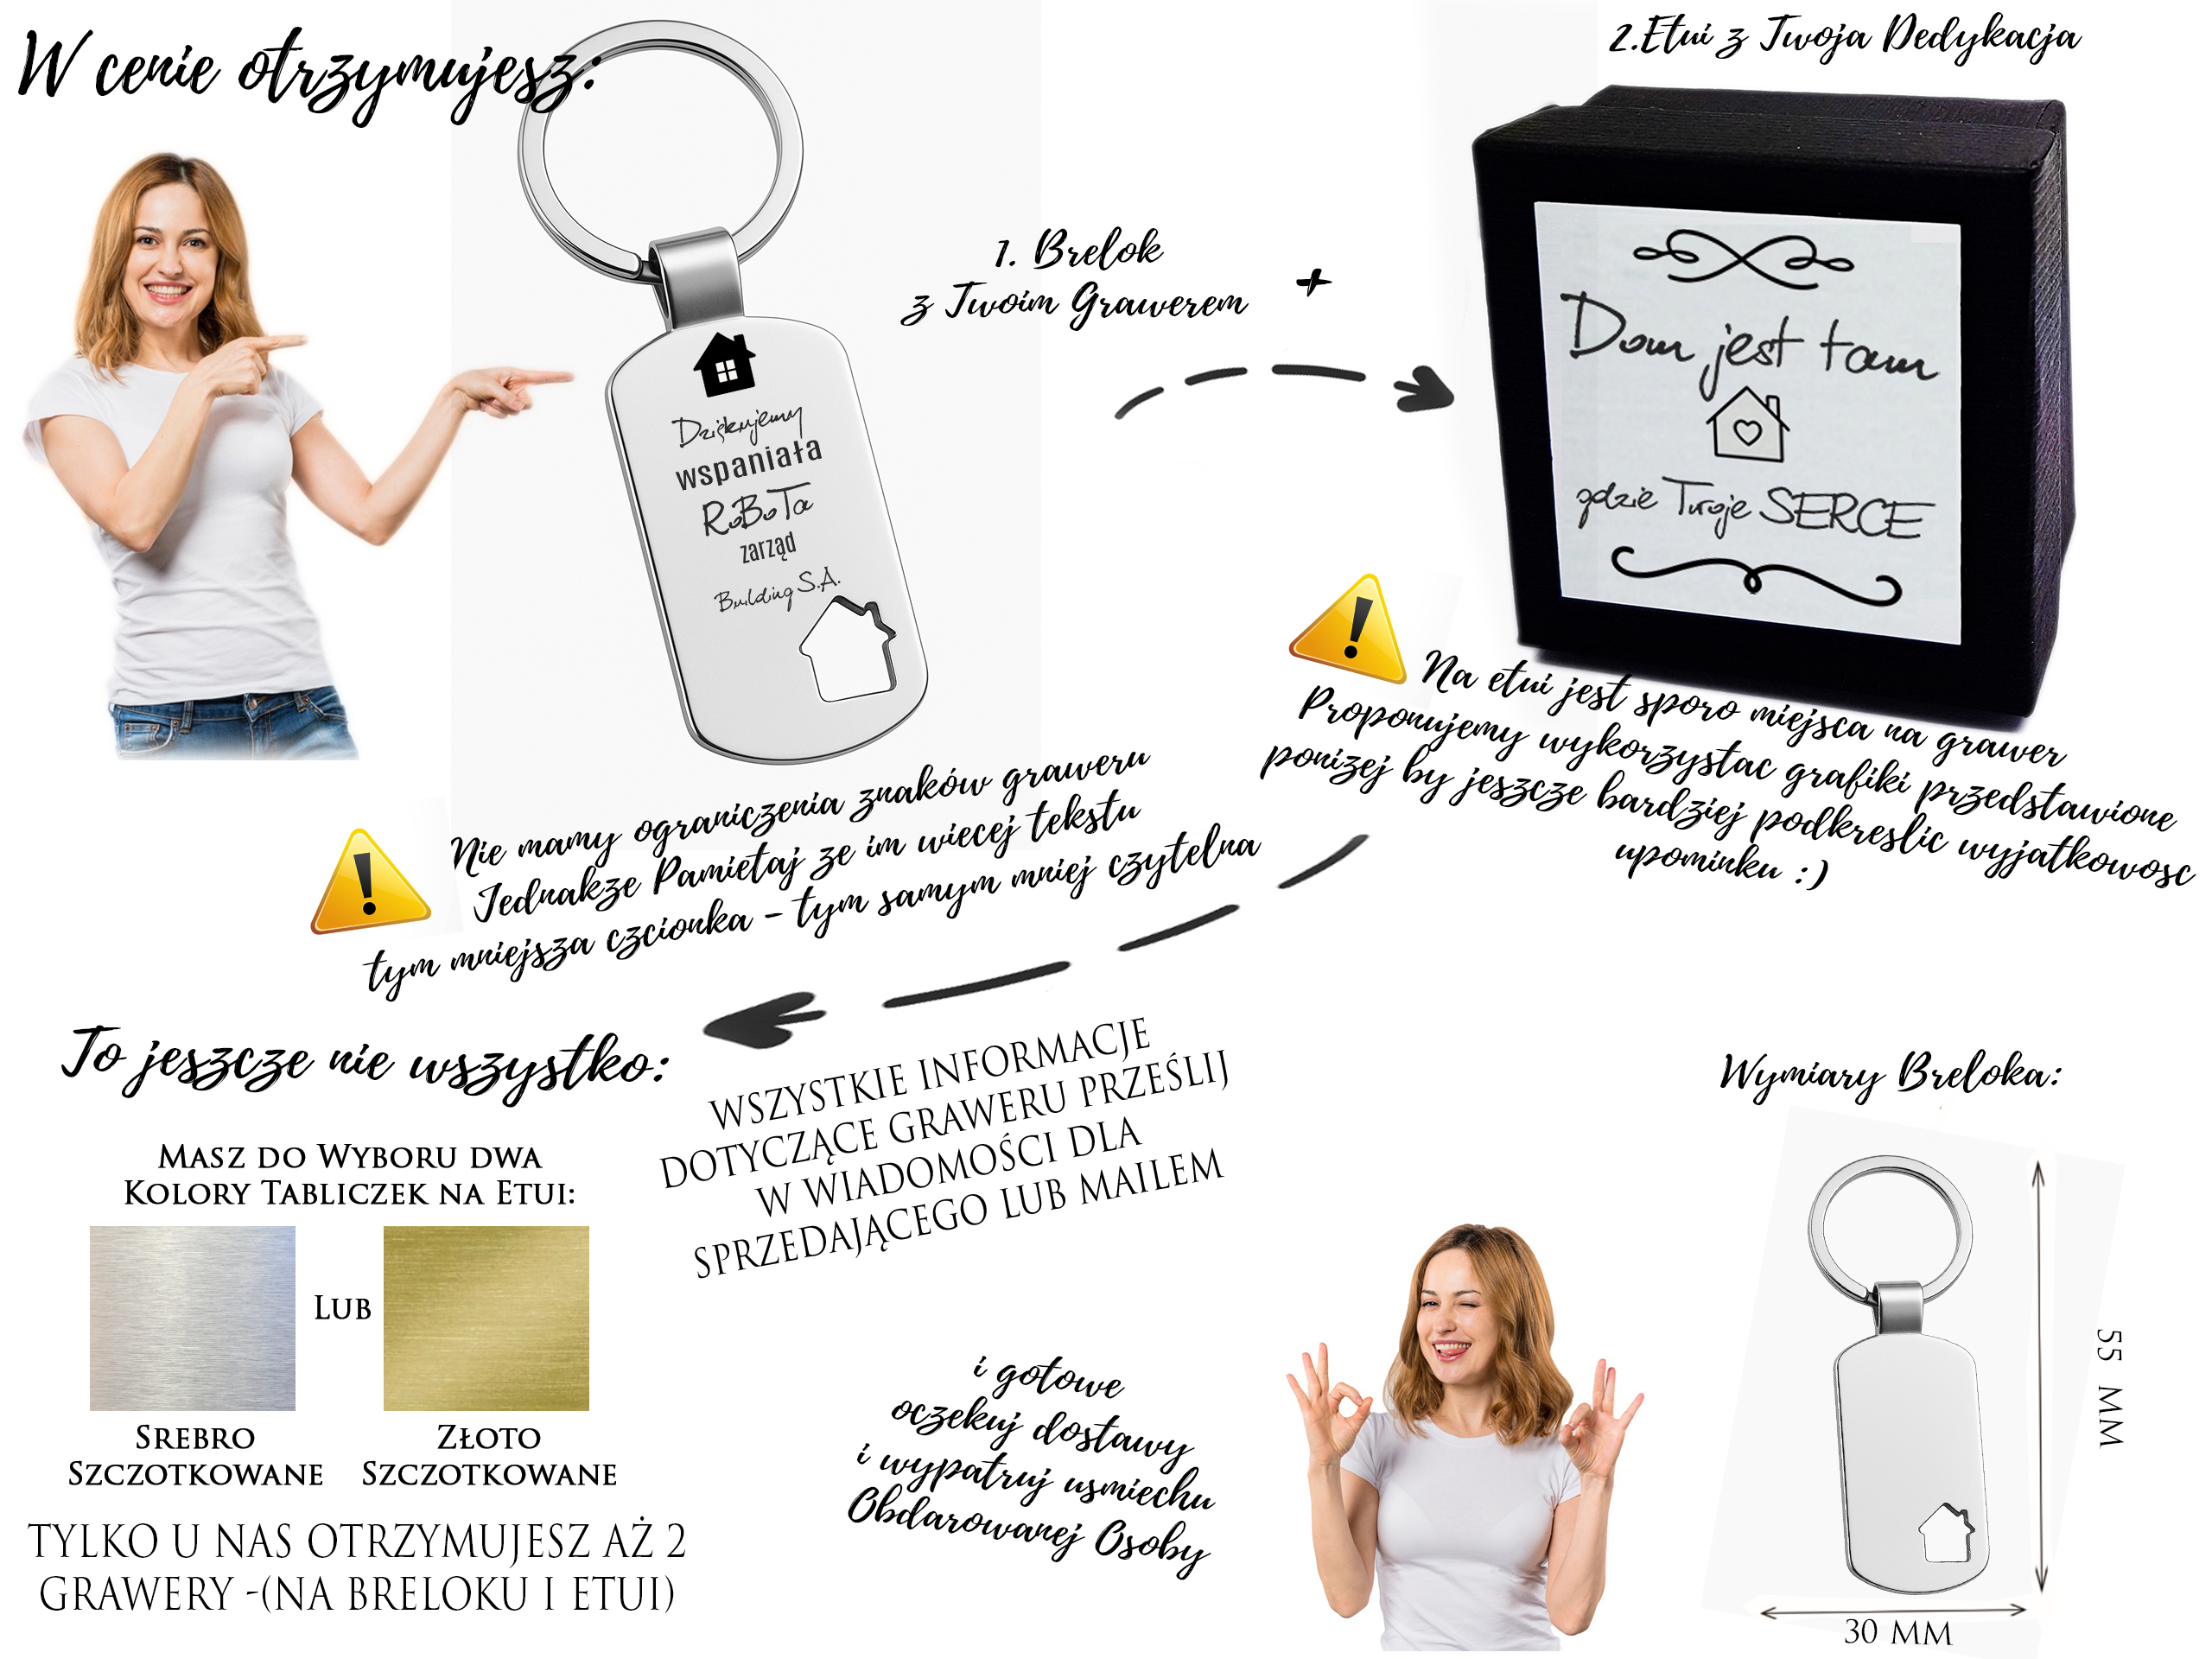 W cenie otrzymujesz:
1. Brelok
z Twoim Grawerem
+
2.Etui z Twoja Dedykacja
Dziękujemy
wspaniała
RoBoTa
zarząd
Building S.A.
Dom jest tam
gdzie Twoje SERCE
Na etui jest sporo miejsca na grawer
Proponujemy wykorzystac grafiki przedstawione
ponizej by jeszcze bardziej podkreslic wyjatkowosc
upominku :)
Nie mamy ograniczenia znaków graweru
Jednakze Pamietaj ze im wiecej tekstu
tym mniejsza czcionka - tym samym mniej czytelna
To jeszcze nie wszystko:
Masz do Wyboru dwa
Kolory Tabliczek na Etui:
Lub
Srebro
szczotkowane
Złoto
szczotkowane
TYLKO U NAS OTRZYMUJESZ AŻ 2
GRAWERY -(NA BRELOKU I ETUI)
WSZYSTKIE INFORMACJE
DOTYCZĄCE GRAWERU PRZEŚLIJ
W WIADOMOŚCI DLA
SPRZEDAJĄCEGO LUB MAILEM
i gotowe
oczekuj dostawy
i wypatruj usmiechu
Obdarowanej Osoby
Wymiary Breloka:
55 MM
30 MM